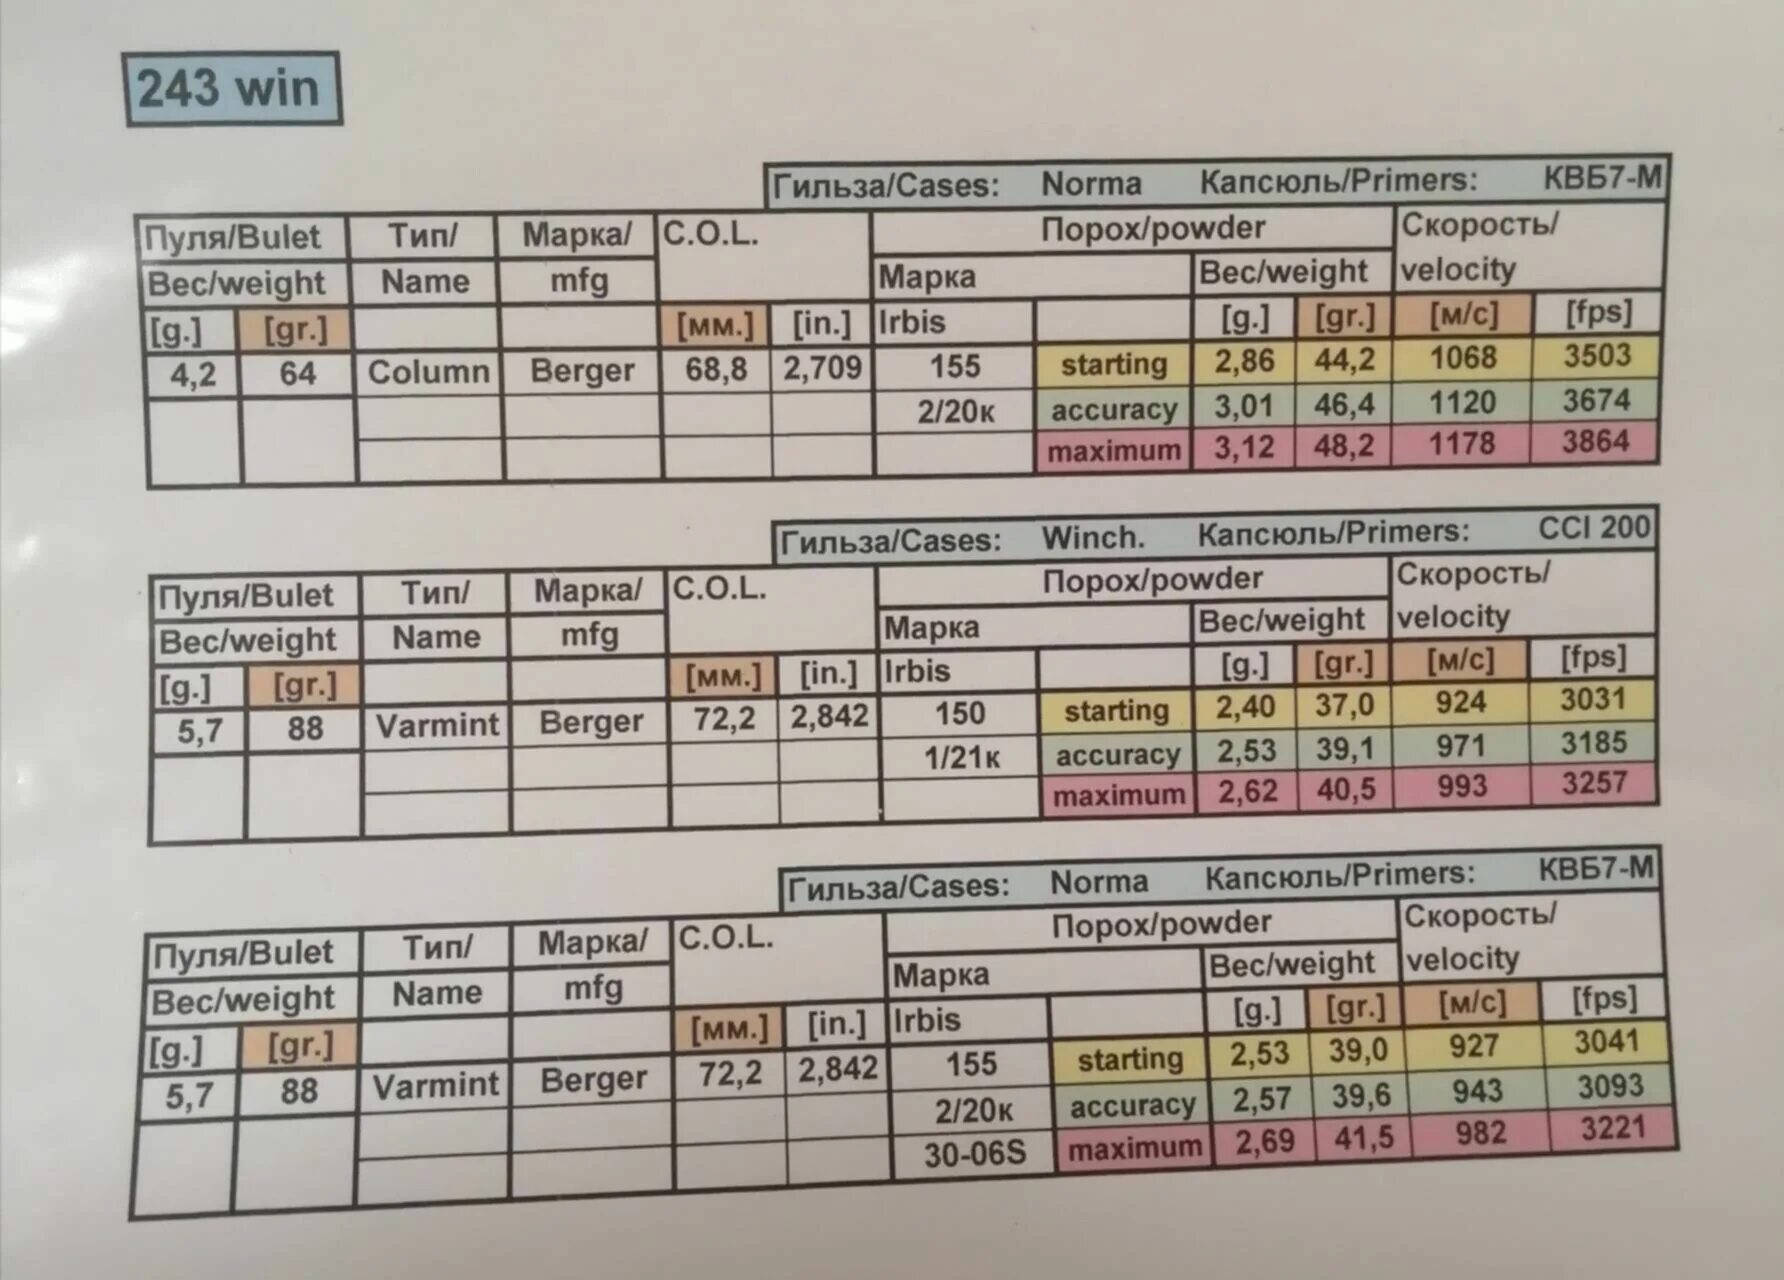 243 win
Гильза/Cases: Norma Капсюль/Primers: КВБ7-М
Пуля/Bulet Тип/ Марка/ C.O.L. Порох/powder Скорость/
Вес/weight Name mfg Марка Вес/weight velocity
[g.] [gr.] [мм.] [in.] Irbis [g.] [gr.] [м/с] [fps]
4,2 64 Column Berger 68,8 2,709 155 starting 2,86 44,2 1068 3503
2/20к accuracy 3,01 46,4 1120 3674
maximum 3,12 48,2 1178 3864
Гильза/Cases: Winch. Капсюль/Primers: CCI 200
Пуля/Bulet Тип/ Марка/ C.O.L. Порох/powder Скорость/
Вес/weight Name mfg Марка Вес/weight velocity
[g.] [gr.] [мм.] [in.] Irbis [g.] [gr.] [м/с] [fps]
5,7 88 Varmint Berger 72,2 2,842 150 starting 2,40 37,0 924 3031
1/21к accuracy 2,53 39,1 971 3185
maximum 2,62 40,5 993 3257
Гильза/Cases: Norma Капсюль/Primers: КВБ7-М
Пуля/Bulet Тип/ Марка/ C.O.L. Порох/powder Скорость/
Вес/weight Name mfg Марка Вес/weight velocity
[g.] [gr.] [мм.] [in.] Irbis [g.] [gr.] [м/с] [fps]
5,7 88 Varmint Berger 72,2 2,842 155 starting 2,53 39,0 927 3041
2/20к accuracy 2,57 39,6 943 3093
30-06S maximum 2,69 41,5 982 3221